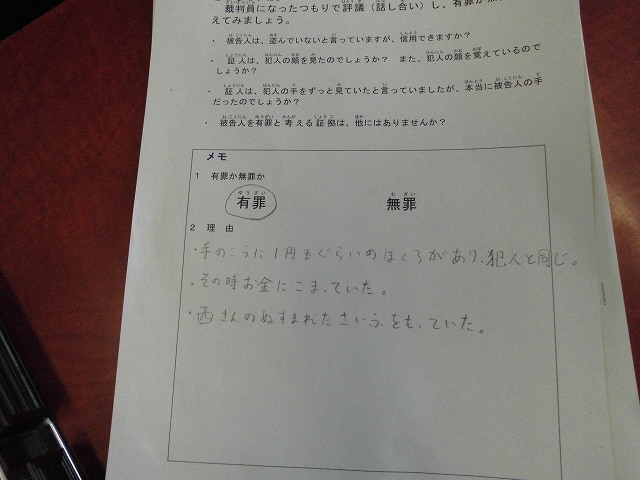 裁判員になったつもりで評議(話し合い)し、有罪か無
えてみましょう。
・ 被告人は、盗んでいないと言っていますが、信用できますか?
・ 証人は、犯人の顔を見たのでしょうか? また、犯人の顔を覚えているので
しょうか?
・ 証人は、犯人の手をずっと見ていたと言っていましたが、本当に被告人の手
だったのでしょうか?
・ 被告人を有罪と考える証拠は、他にはありませんか?
メモ
1 有罪か無罪か
有罪 無罪
2 理由
・手のこうに1円玉ぐらいのほくろがあり、犯人と同じ。
・その時お金にこまっていた。
・西さんのぬすまれたさいふをもっていた。